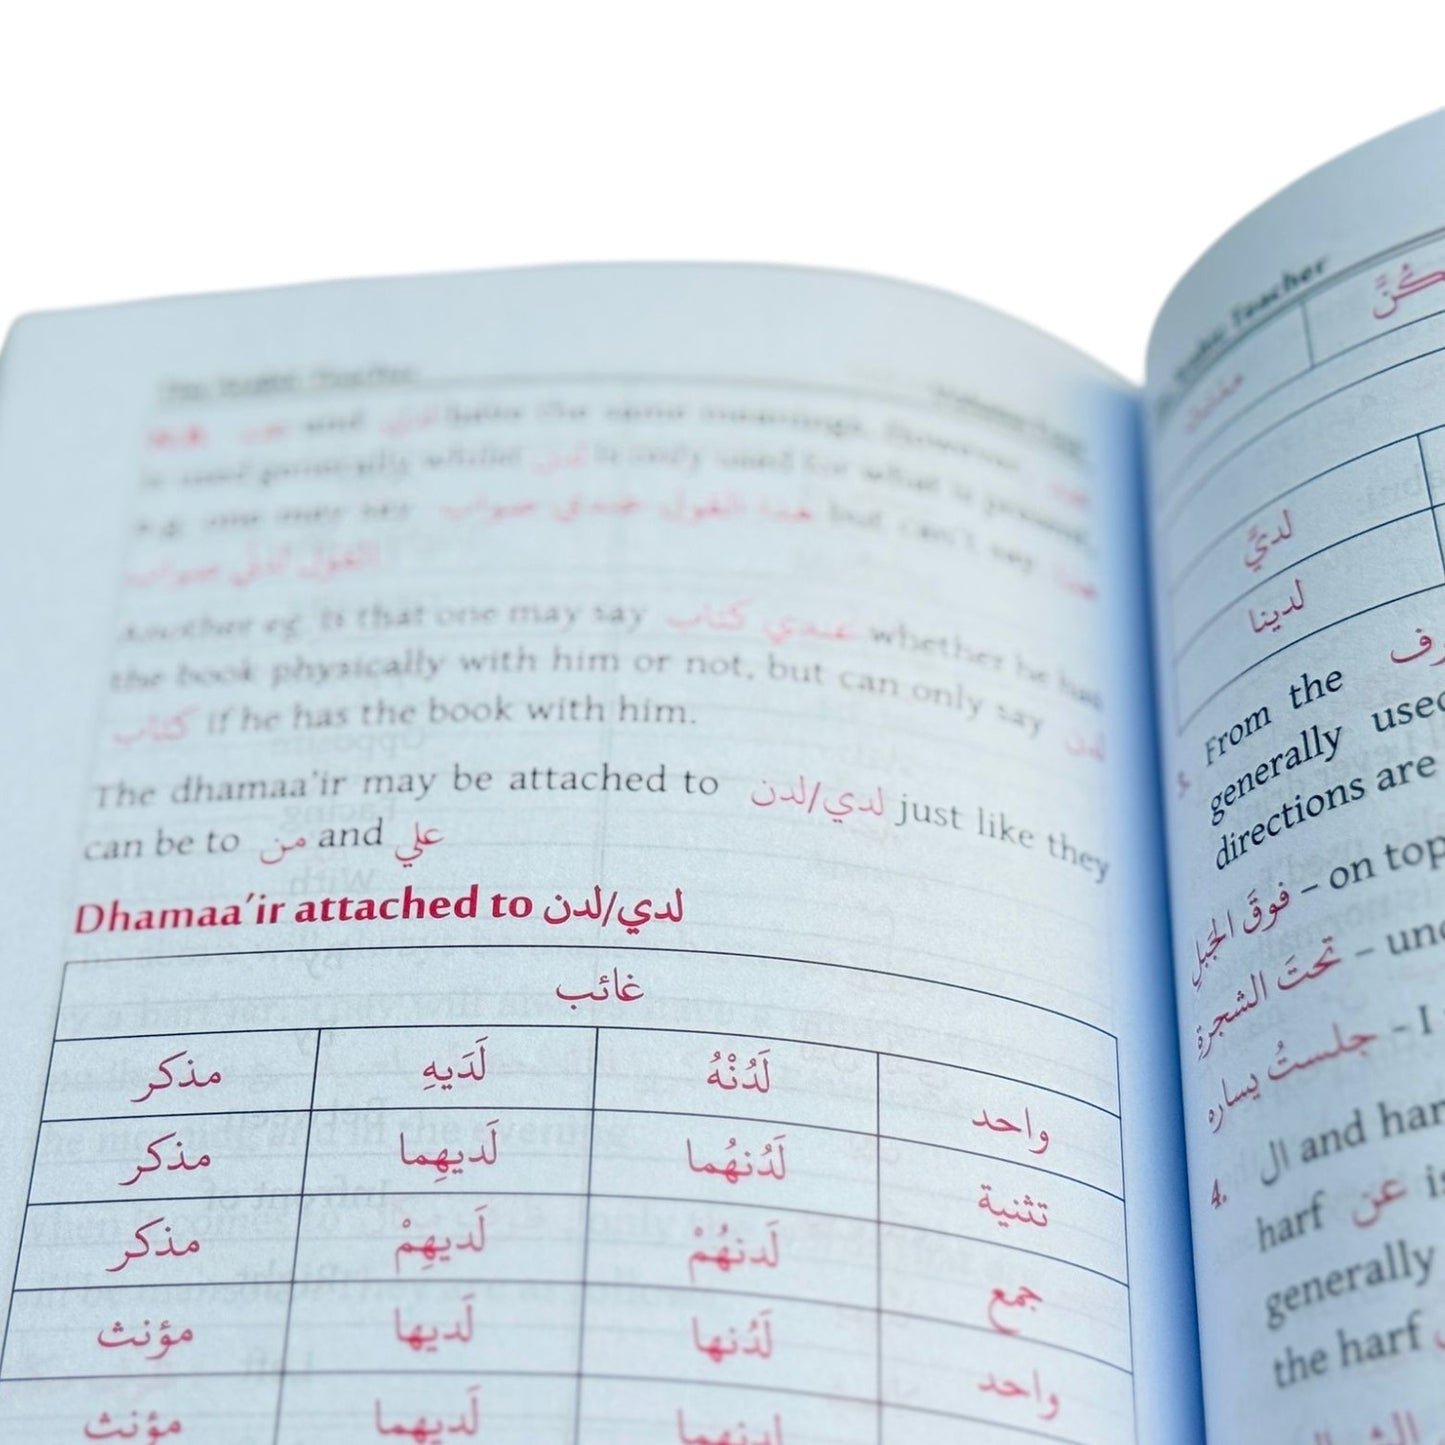 The Arabic Teacher
N.B. عند and لدي have the same meanings. However, عند
is used generally whilst لدن is only used for what is present,
e.g. one may say هذا القول عندي صواب but can't say هذا
القول لدني صواب
Another eg. is that one may say عندي كتاب whether he has
the book physically with him or not, but can only say لدن
كتاب if he has the book with him.
The dhamaa'ir may be attached to لدي/لدن just like they
can be to من and علي
Dhamaa'ir attached to لدي/لدن
غائب
مذكر لَدَيهِ لَدُنْهُ واحد
مذكر لَديهِما لَدُنهُما تثنية
مذكر لَديهِمْ لَدنهُمْ جمع
مؤنث لَديها لَدُنها واحد
مؤنث لَديهما لدنهما
Teacher
كُنَّ
لديَّ
لدينا
3. From the
generally used
directions are
فوقَ الجَبلِ – on top
تحتَ الشجرةِ –
جلستُ يساره – I
4. ال and har
harf عن is
generally
the harf